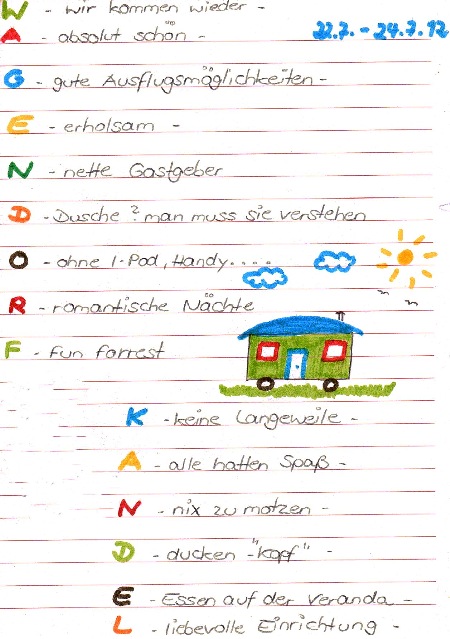 W - wir kommen wieder -
A - absolut schön -
22.7. - 24.7.12
G - gute Ausflugsmöglichkeiten -
E - erholsam -
N - nette Gastgeber
D - Dusche ? man muss sie verstehen
O - ohne I-Pod, Handy....
R - romantische Nächte
F - fun forrest
K - keine Langeweile -
A - alle hatten Spaß -
N - nix zu motzen -
D - ducken -"Kopf" -
E - Essen auf der Veranda -
L - liebevolle Einrichtung -